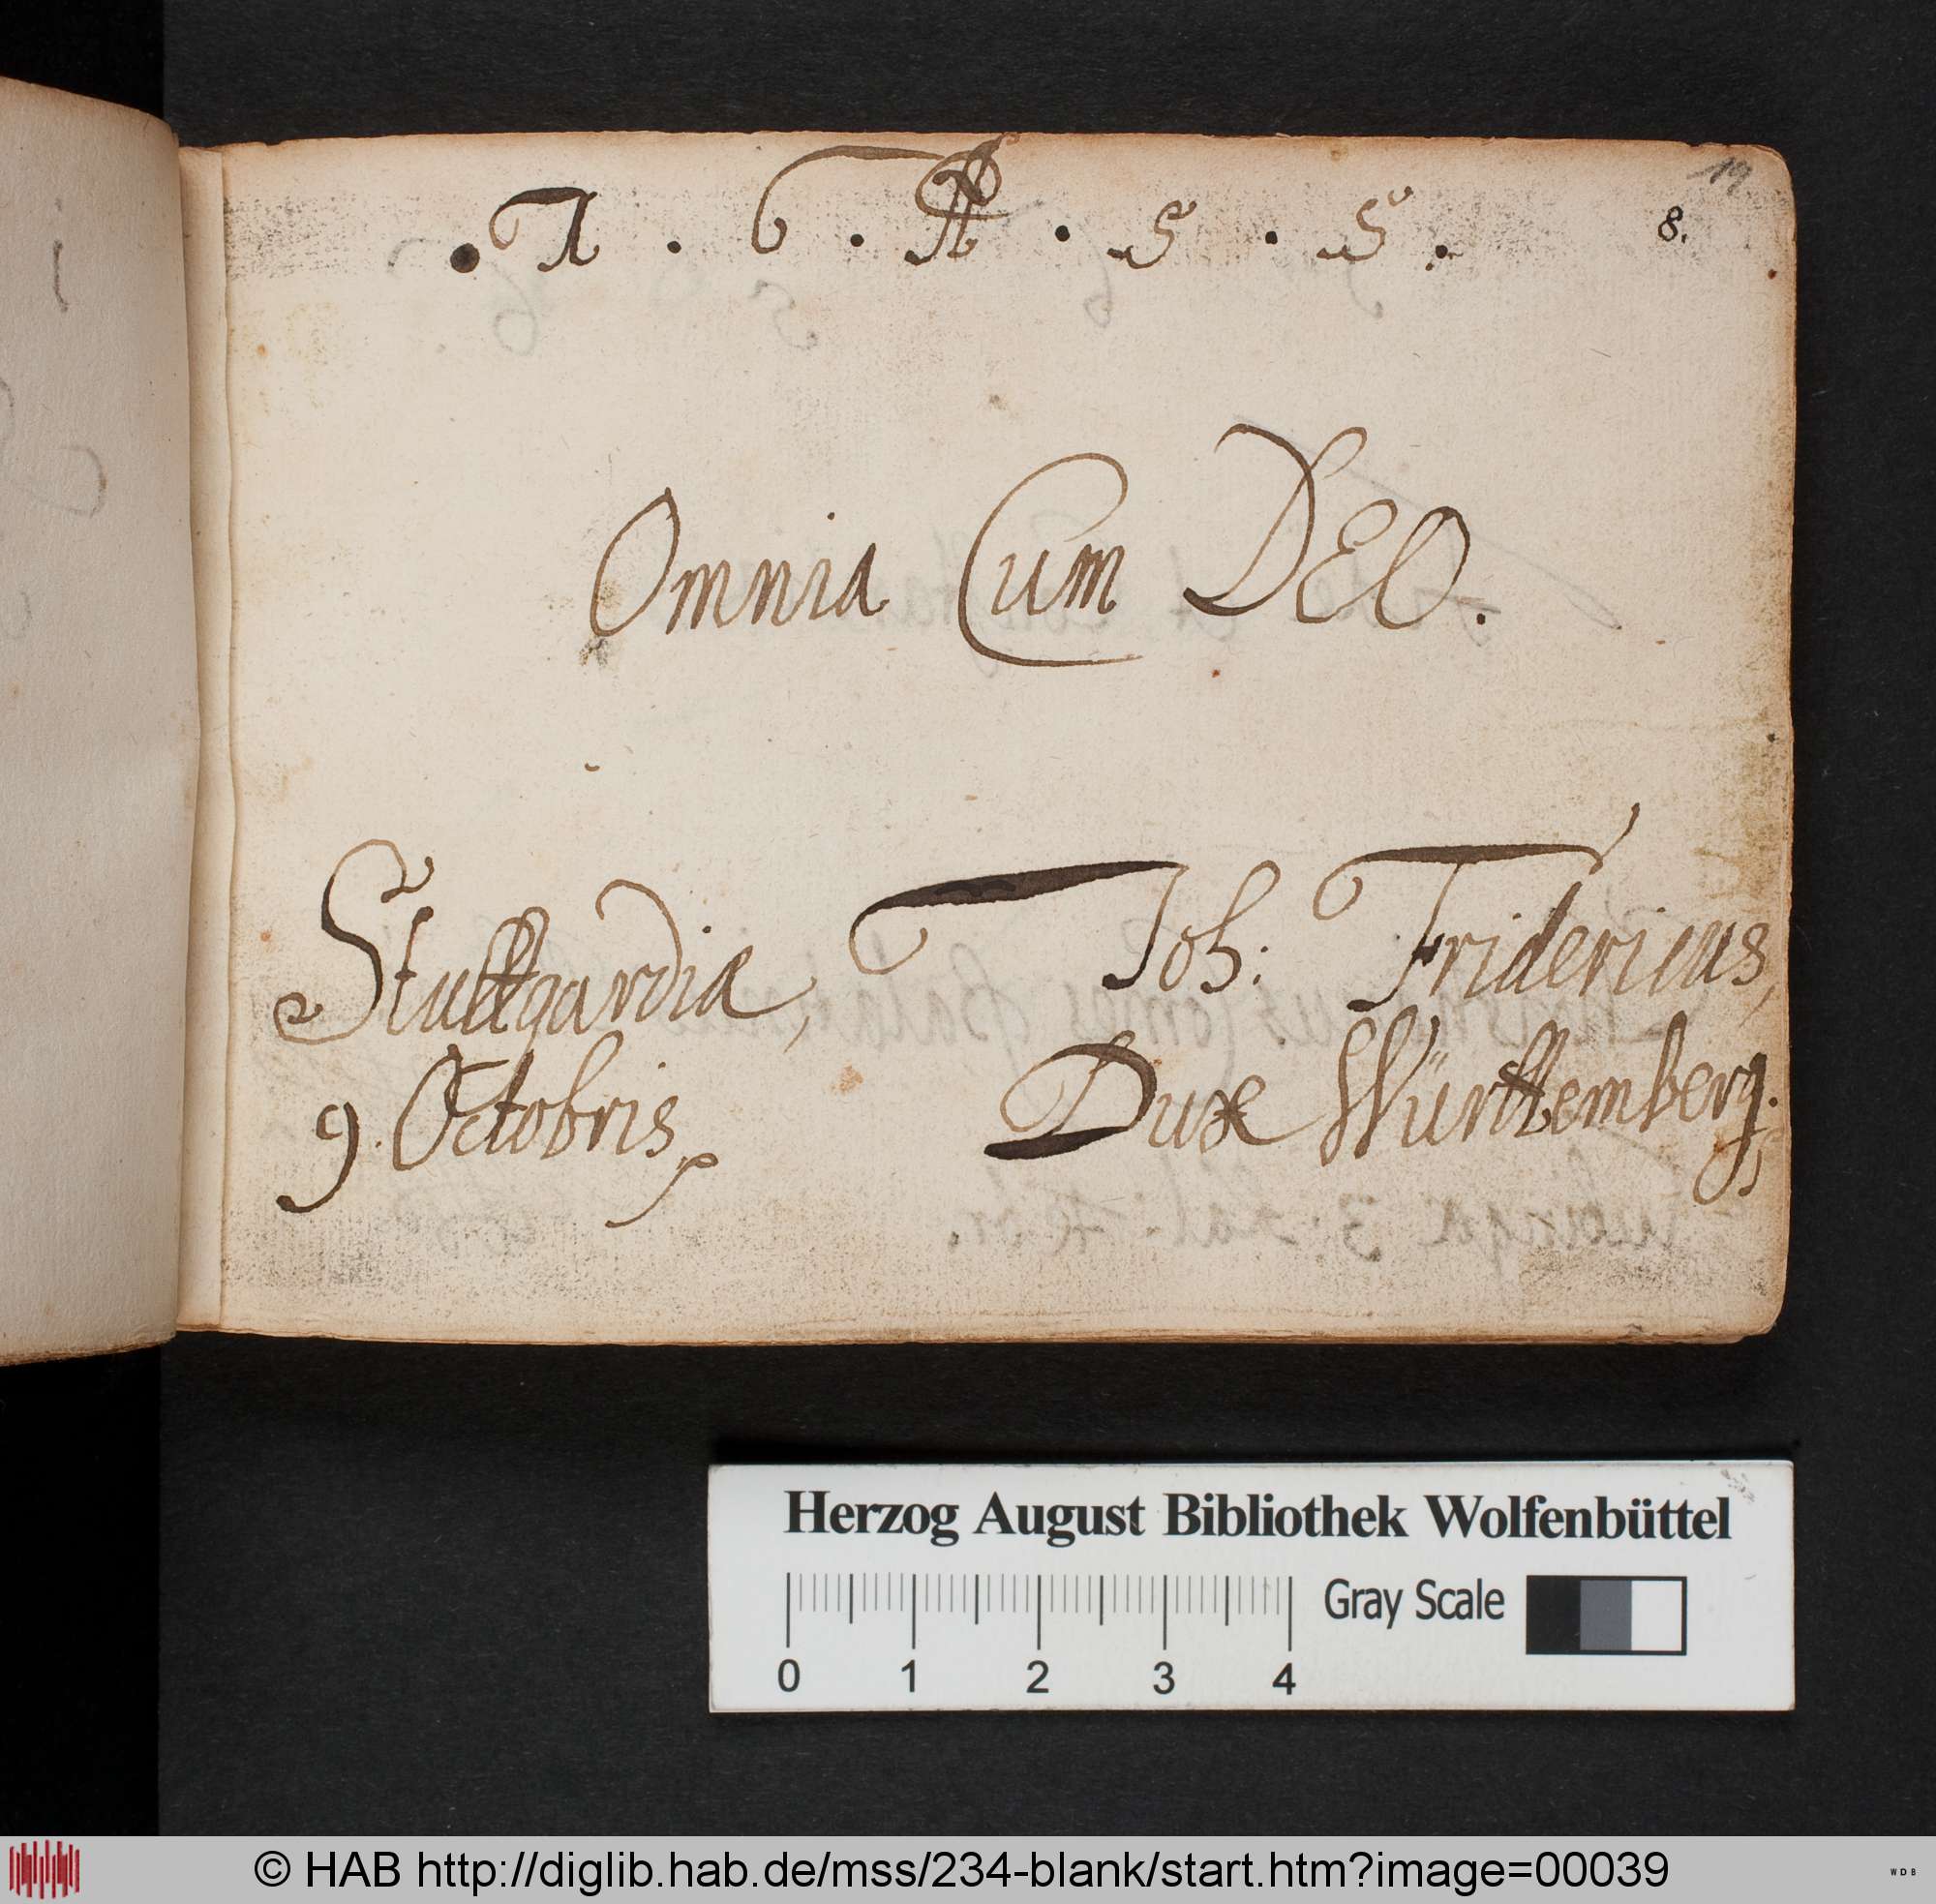 19
. 1 . 6 . A . 5 . 5 .
8.
Omnia Cum DEO.
Stuttgardiæ, Joh: Fridericus,
9. Octobris Dux Württemberg.
Herzog August Bibliothek Wolfenbüttel
Gray Scale
0 1 2 3 4
© HAB http://diglib.hab.de/mss/234-blank/start.htm?image=00039
WDB